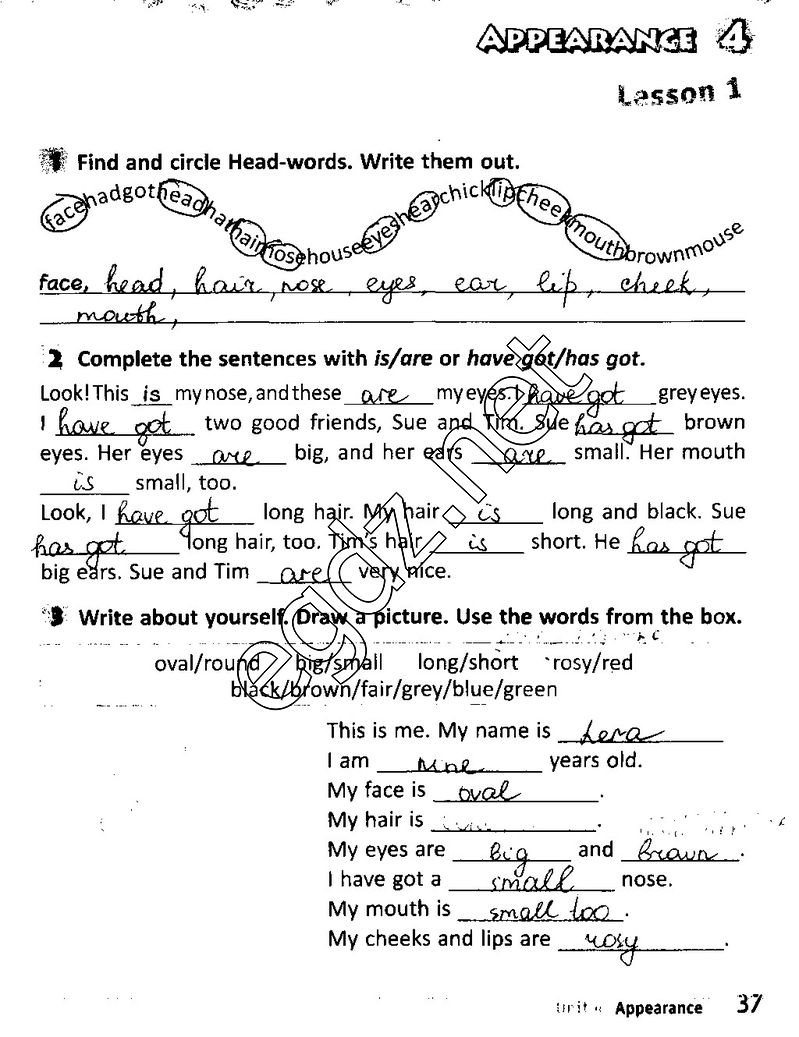 APPEARANCE 4
Lesson 1
1 Find and circle Head-words. Write them out.
facehadgotheadhathairnosehouseeyeshearchicklipcheekmouthbrownmouse
face, head, hair, nose, eyes, ear, lip, cheek,
mouth,
2 Complete the sentences with is/are or have got/has got.
Look! This is my nose, and these are my eyes. I have got grey eyes.
I have got two good friends, Sue and Tim. Sue has got brown
eyes. Her eyes are big, and her ears are small. Her mouth
is small, too.
Look, I have got long hair. My hair is long and black. Sue
has got long hair, too. Tim's hair is short. He has got
big ears. Sue and Tim are very nice.
3 Write about yourself. Draw a picture. Use the words from the box.
oval/round big/small long/short rosy/red
black/brown/fair/grey/blue/green
This is me. My name is Lera
I am nine years old.
My face is oval.
My hair is .
My eyes are big and brown.
I have got a small nose.
My mouth is small too.
My cheeks and lips are rosy.
Unit Appearance 37
egdz.net